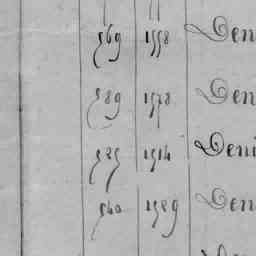 569 1558 Den
589 1578 Den
525 1514 Deni
540 1529 Den